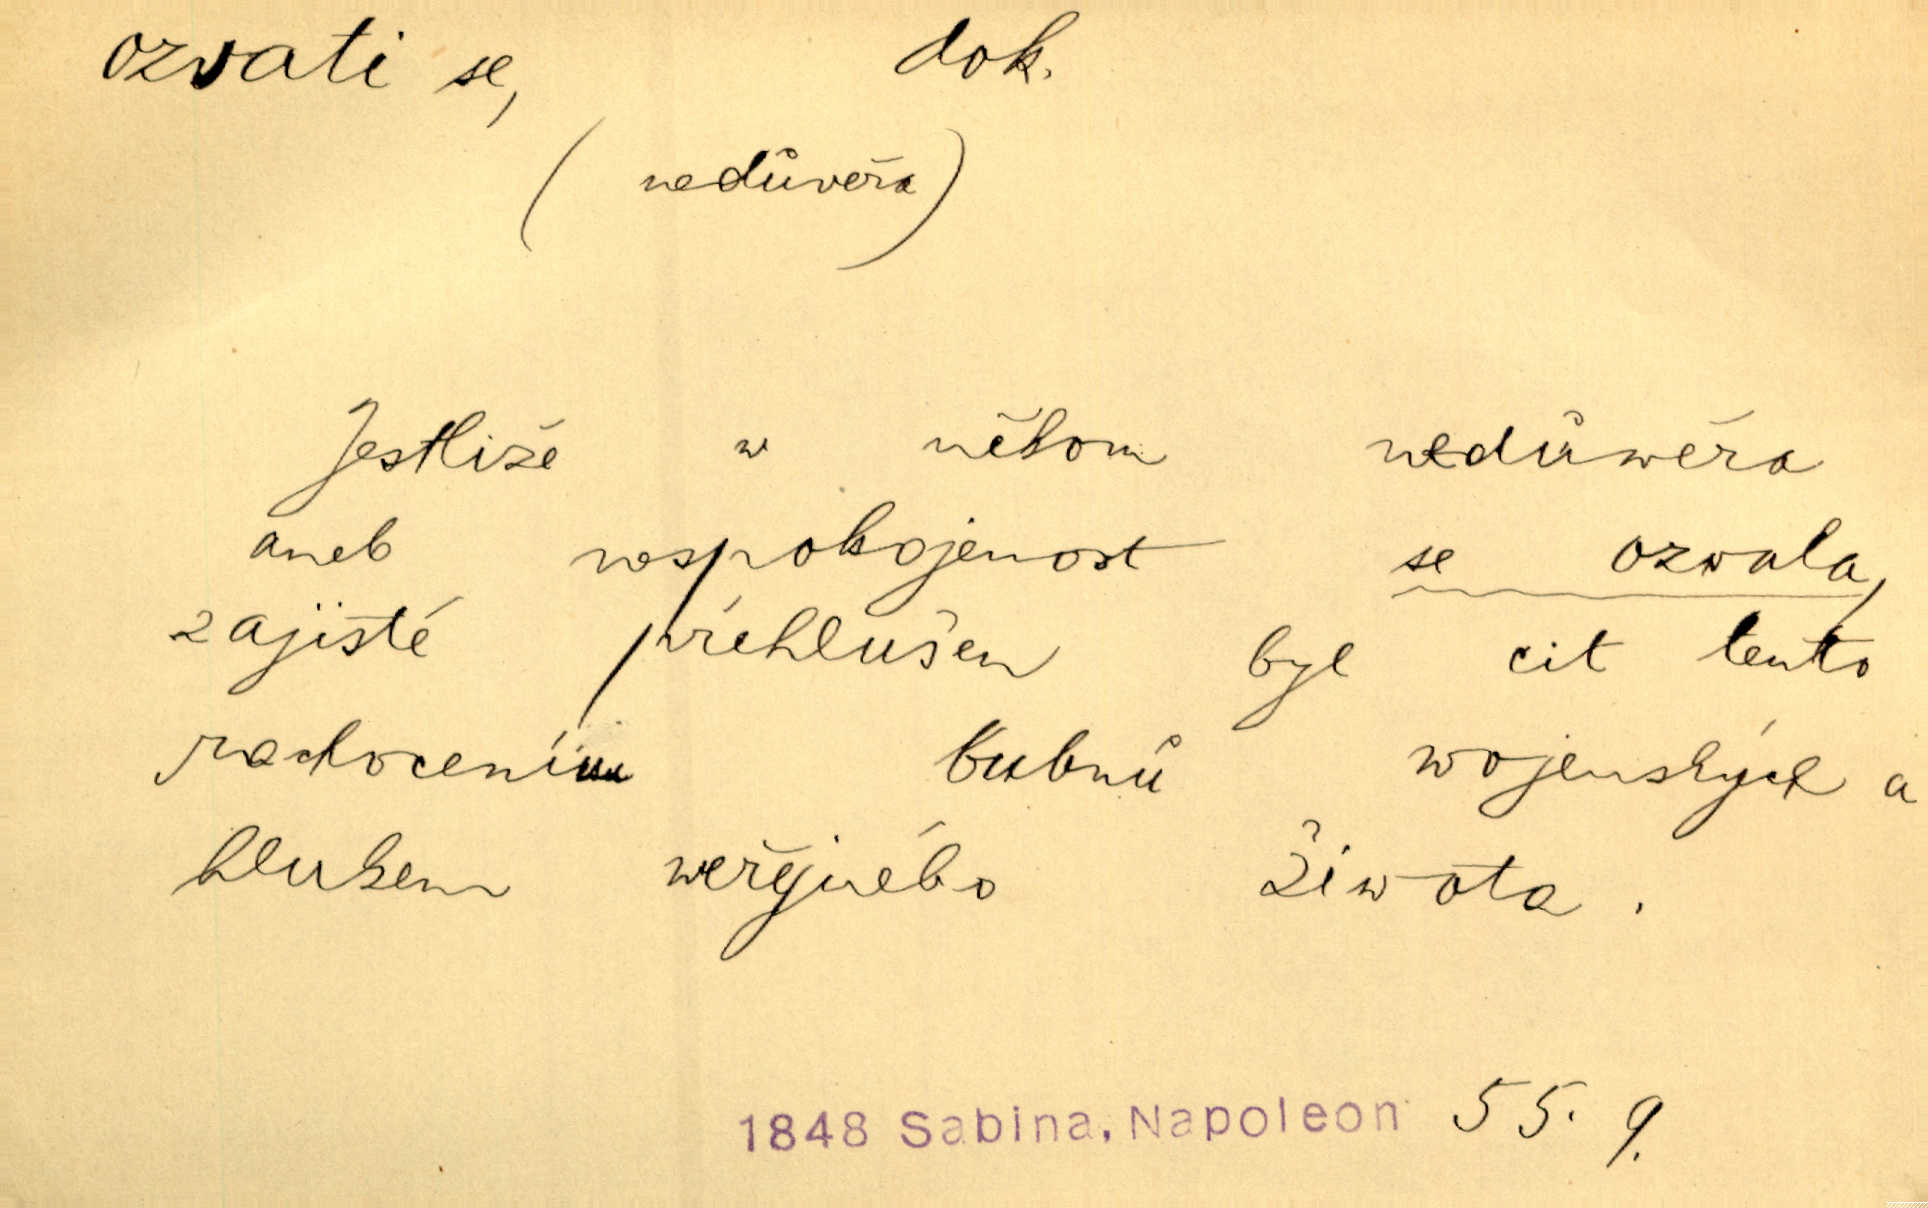 ozvati se, dok.
(nedůvěra)
Jestliže w někom nedůwěra
aneb nespokojenost se ozwala,
zajisté přehlušen byl cit tento
rachocením bubnů wojenských a
hlukem weřejného žiwota.
1848 Sabina, Napoleon 55. 9.